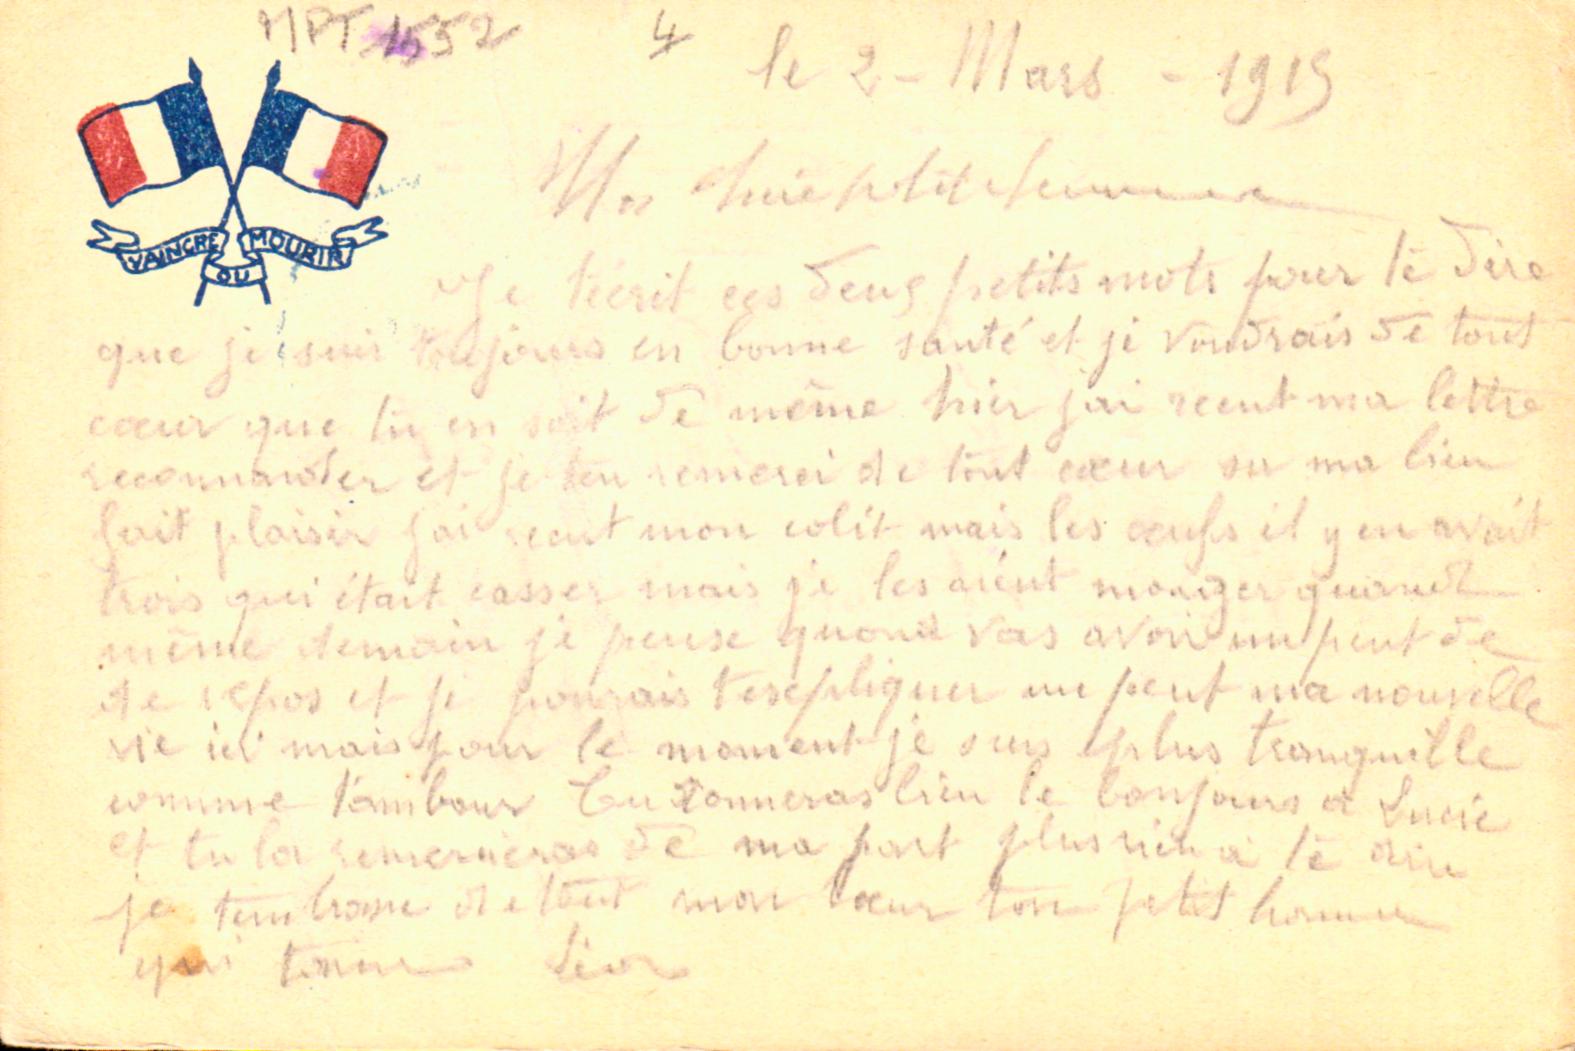 MPT 1552
4
le 2 - Mars - 1915
VAINCRE OU MOURIR
Ma chérie petit femme
Je técrit ces deux petits mots pour tè dire
que je suis toujours en bonne santé et je voudrais de tout
cœur que tu en soit de même hier jai recut ma lettre
recommander et je ten remerci de tout cœur sa ma bien
fait plaisir jai recut mon colit mais les œufs il y en avait
trois qui était casser mais je les aient manger quand
même demain je pense quond vas avoir un peut de
de repos et je pourais texepliquer un peut ma nouvelle
vie ici mais pour le moment je suis plus tranquille
comme tambour tu donneras bien le bonjours a Lucie
et tu la remercieras de ma part plus rien a tè dire
je tembrasse de tout mon cœur ton petit homme
qui taime Léon